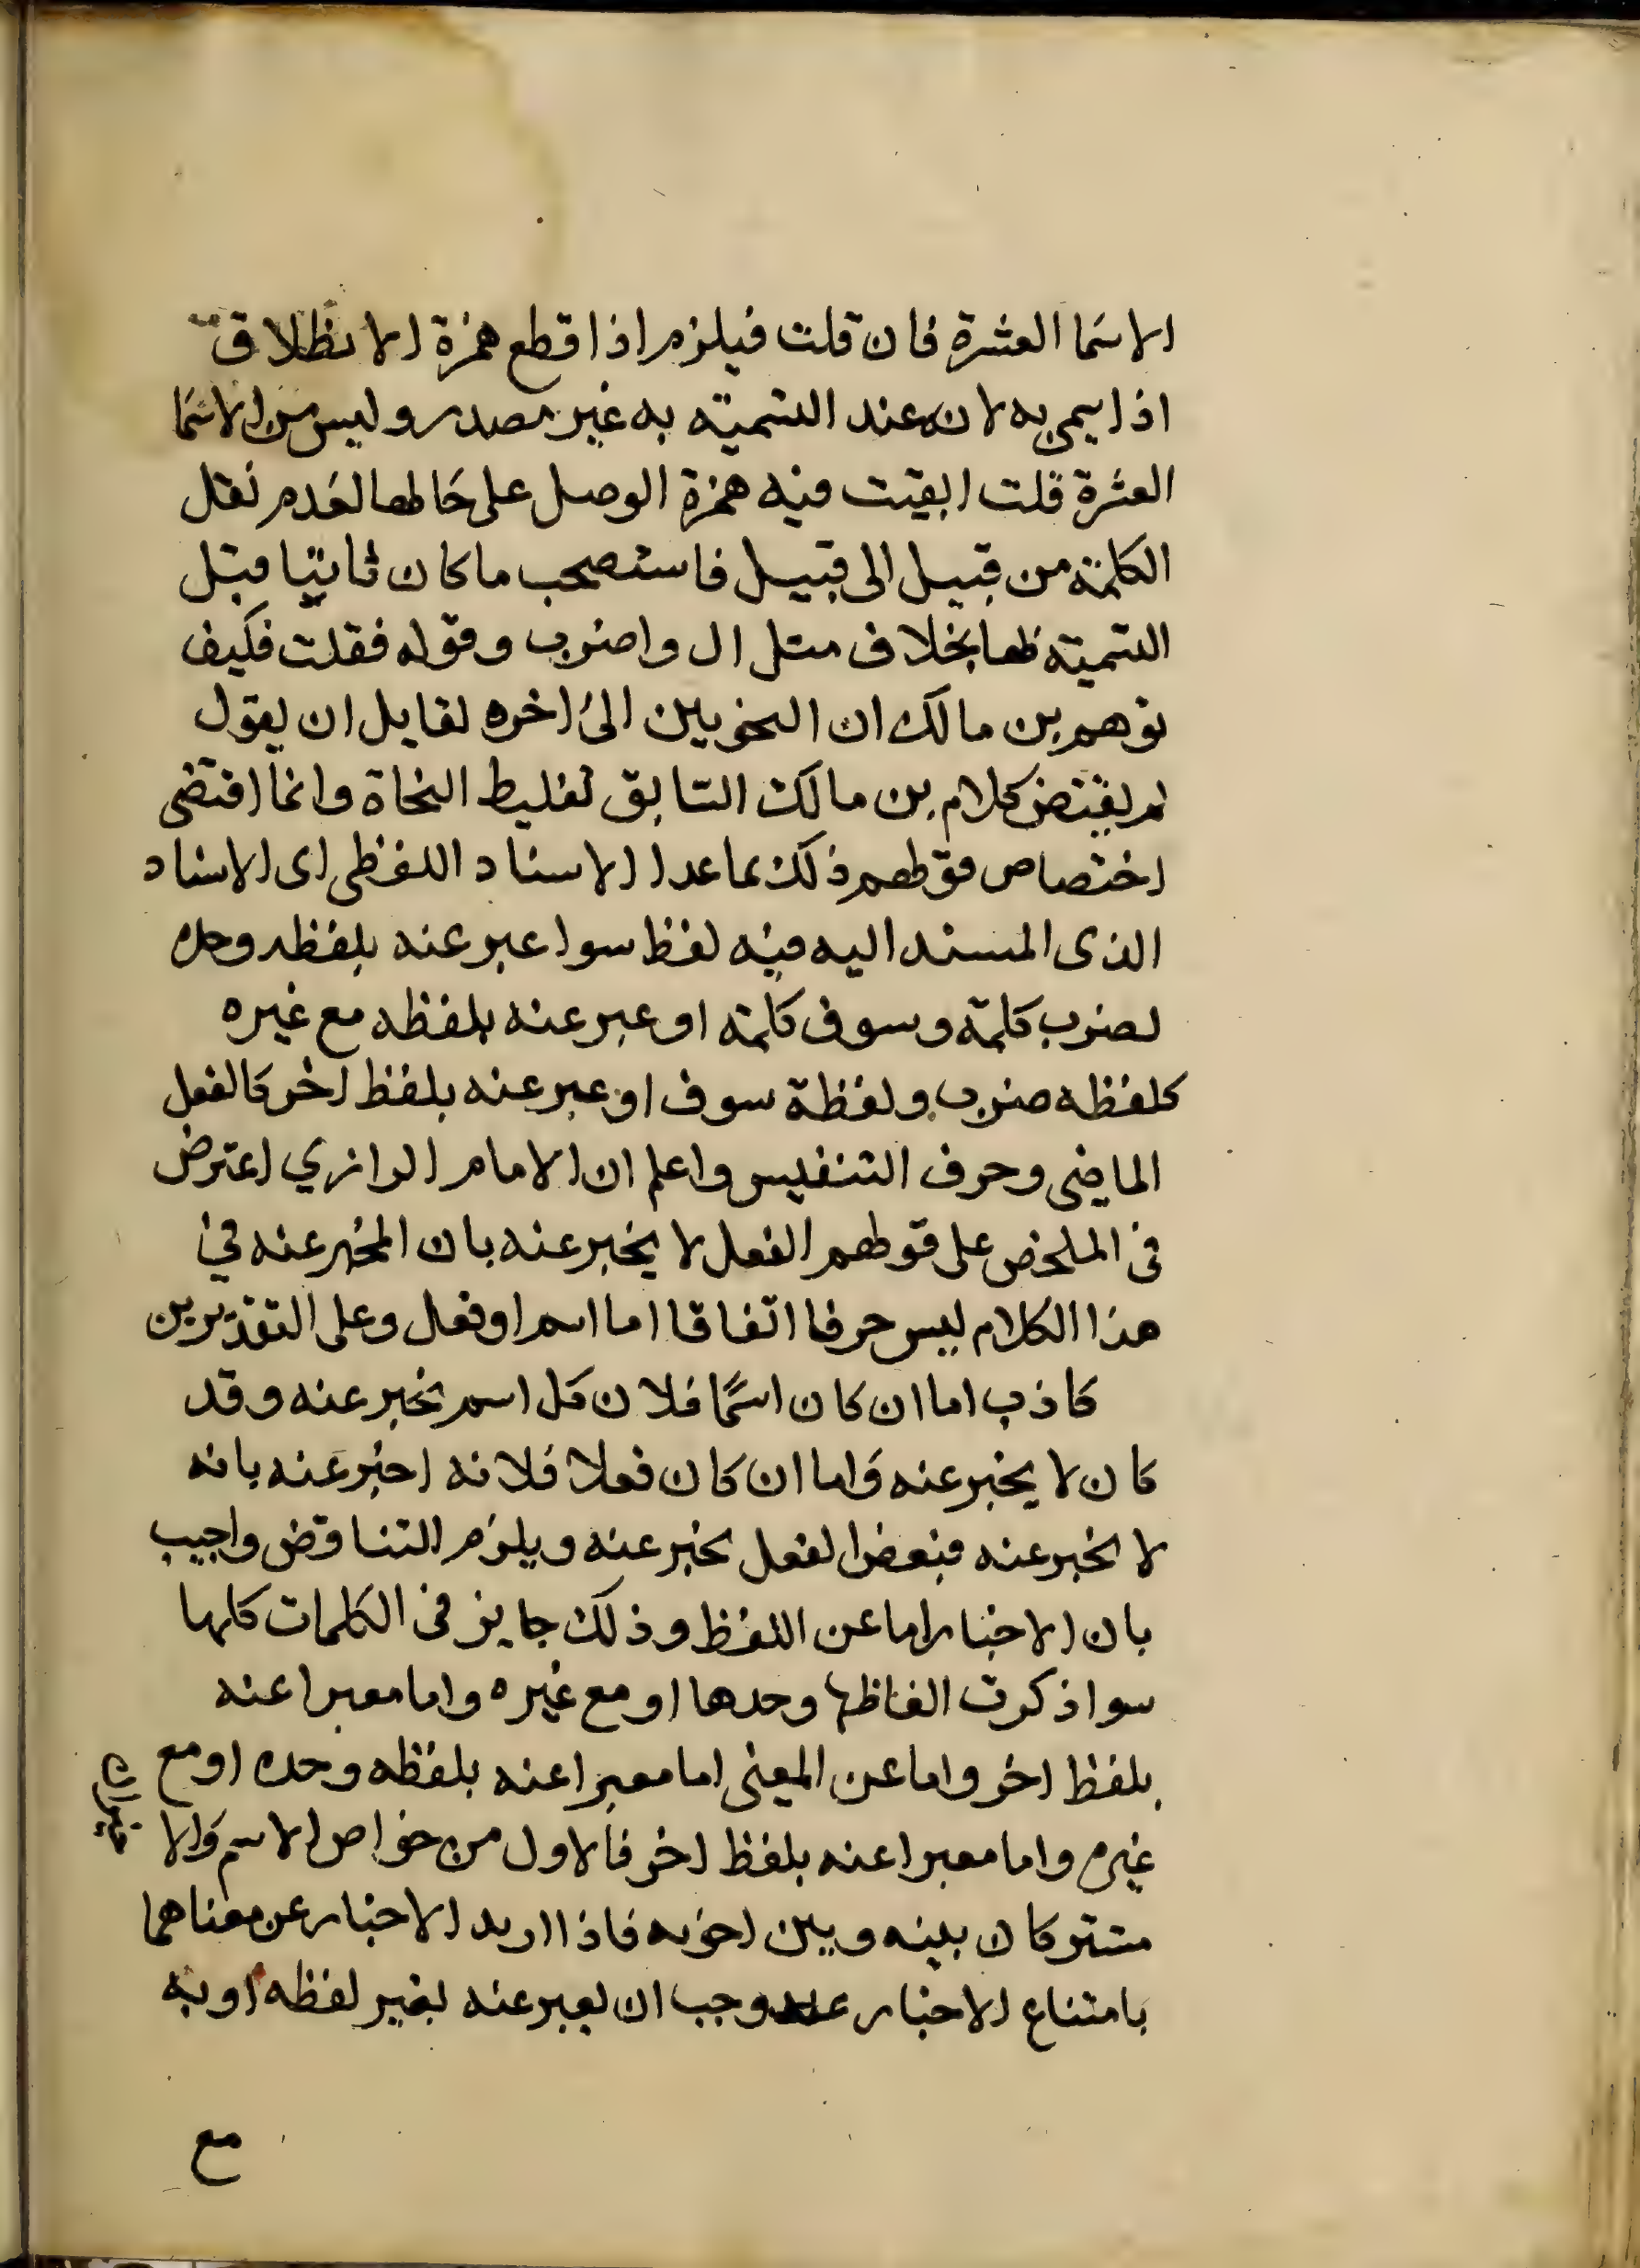 الاسما العشرة فان قلت فيلزم اذا قطع همزة الانطلاق
اذا سمى به لانه عند التسمية به غير مصدر وليس من الاسما
العشرة قلت ابقيت فيه همزة الوصل على حالها لعدم نقل
الكلمة من قبيل الى قبيل فاستصحب ما كان ثابتا قبل
التسمية لها بخلاف مثل ال واضرب وقوله فقلت فكيف
توهم بن مالك ان النحويين الى اخره لقايل ان يقول
لم يقتض كلام بن مالك السابق تغليط النحاة وانما اقتضى
اختصاص قولهم ذلك بما عدا الاسناد اللفظى اى الاسناد
الذى المسند اليه فيه لفظ سوا عبر عنه بلفظه وحده
لضرب كلمة وسوف كلمة او عبر عنه بلفظه مع غيره
كلفظه ضرب ولفظة سوف او عبر عنه بلفظ اخر كالفعل
الماضى وحرف التنفيس واعلم ان الامام الرازي اعترض
فى الملخص على قولهم الفعل لا يخبر عنه بان المخبر عنه في
هذا الكلام ليس حرفا اتفاقا اما اسم او فعل وعلى التقديرين
كاذب اما ان كان اسما فلان كل اسم يخبر عنه وقد
كان لا يخبر عنه واما ان كان فعلا فلانه اخبر عنه بانه
لا يخبر عنه فبعض الفعل يخبر عنه ويلزم التناقض واجيب
بان الاخبار اما عن اللفظ وذلك جايز فى الكلمات كلها
سوا ذكرت الفاظها وحدها او مع غيره واما معبرا عنه
بلفظ اخر واما عن المعنى اما معبرا عنه بلفظه وحده او مع
غيره واما معبرا عنه بلفظ اخر فالاول من خواص الاسم والا
مشتركان بينه وبين اخويه فاذا اريد الاخبار عن معناهما
بامتناع الاخبار عنه وجب ان يعبر عنه بغير لفظه او به
مع